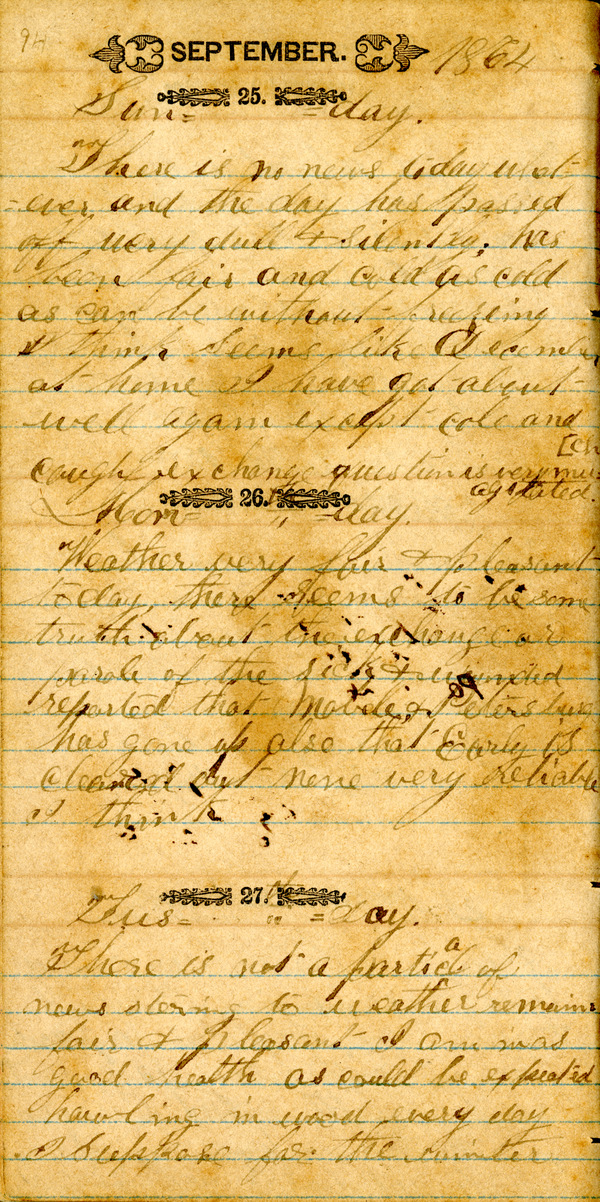 94
SEPTEMBER. 1864
25.
Sun= =day.
There is no news today what-
=ever, and the day has passed
off very dull & silently. has
been fair and cold as cold
as can be without freezing
I think seems like December
at home I have got about
well again except cold and
cough exchange question is very mu-
[ch
agitated.
26.
Mon= " =day.
Weather very fair & pleasant
today, there seems to be some
truth about the exchange or
parole of the sick & wounded
reported that Mobile & Petersburg
has gone up also that Early is
cleaned out none very reliable
I think
27.
Tus= " =day.
There is not a particla of
news stering to weather remains
fair & pleasant I am in as
good health as could be expected
hawling in wood every day
I suppose for the winter